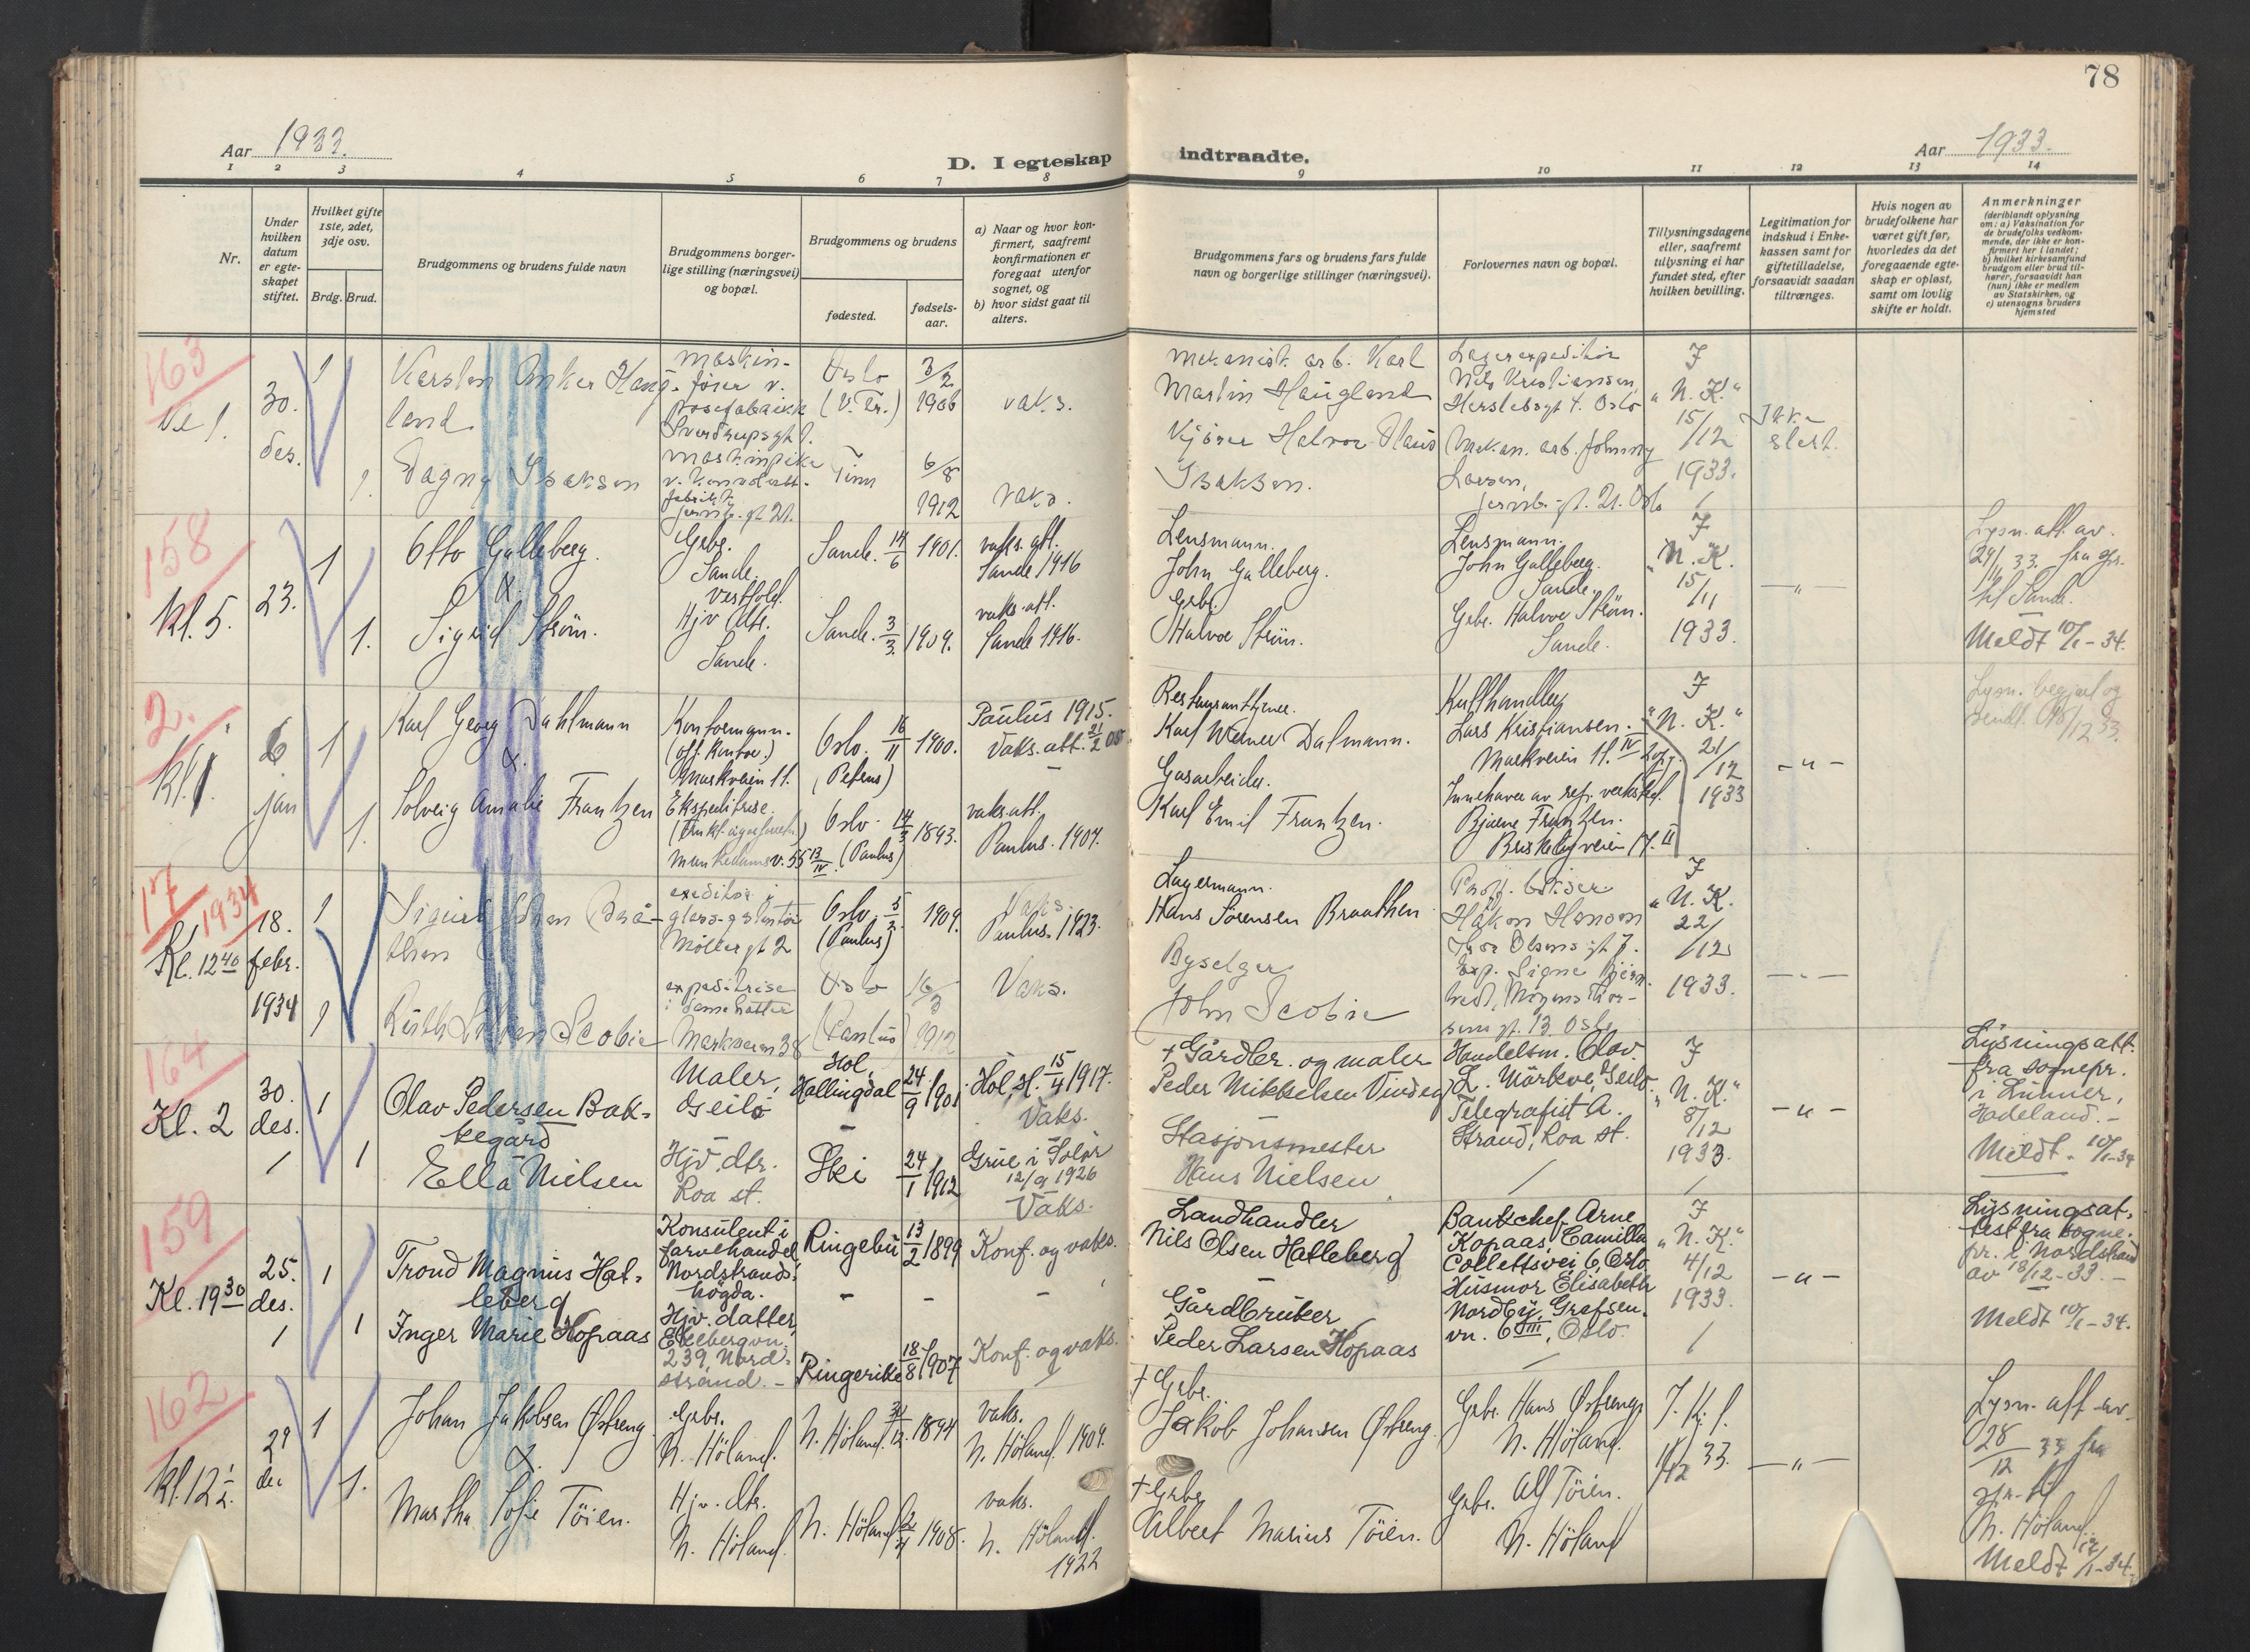 78
Aar 1933.
D. I egteskap indtraadte.
Aar 1933.
1 2 3 4 5 6 7 8 9 10 11 12 13 14
Nr.
Under hvilken datum er egteskapet stiftet.
Hvilket gifte 1ste, 2det, 3dje osv.
Brdg. Brud.
Brudgommens og brudens fulde navn
Brudgommens borgerlige stilling (næringsvei) og bopæl.
Brudgommens og brudens
fødested.
fødselsaar.
a) Naar og hvor konfirmert, saafremt konfirmationen er foregaat utenfor sognet, og
b) hvor sidst gaat til alters.
Brudgommens fars og brudens fars fulde navn og borgerlige stillinger (næringsvei).
Forlovernes navn og bopæl.
Tillysningsdagene eller, saafremt tillysning ei har fundet sted, efter hvilken bevilling.
Legitimation for indskud i Enkekassen samt for giftetilladelse, forsaavidt saadan tiltrænges.
Hvis nogen av brudefolkene har været gift før, hvorledes da det foregaaende egteskap er opløst, samt om lovlig skifte er holdt.
Anmerkninger
(deriblandt oplysning om: a) Vaksination for de brudefolks vedkommende, der ikke er konfirmert her i landet; b) hvilket kirkesamfund brudgom eller brud tilhører, forsaavidt han (hun) ikke er medlem av Statskirken, og c) utensogns bruders hjemsted
163
30. des.
1
1.
Karsten Anker Haugland
Dagny Isaksen
Maskinfører v. posefabrikk
Sverdrupsgt
Oslo
3/2 1906
vaks.
Tinn
6/8 1912
vaks.
Mekanisk arb. Karl
Martin Haugland
Kjører Halvor
Isaksen.
Lagerexpeditør
Nils Kristiansen,
Herslebsgt 4. Oslo
Mekan. arb. Johnny
Larsen,
gt. 21. Oslo
J
"N. K."
15/12
1933.
Ikke
158
Kl. 5.
23.
1
1.
Otto Galleberg.
&
Sigrid Strøm.
Gbr.
Sande.
Vestfold.
Hjv. dtr.
Sande.
Sande. 14/6 1901.
Sande. 3/3. 1909.
vaks. att.
Sande 1916
vaks. att.
Sande 1916.
Lensmann.
John Galleberg.
Gbr.
Halvor Strøm.
Lensmann.
John Galleberg.
Sande.
Gbr. Halvor Strøm.
Sande.
J
"N. K.
15/11
1933.
— " —
Lysn. att. av.
24/11 33. fra
til Sande.
Meldt 10/1-34.
2.
Kl. 1
6 jan
1
1.
Karl Georg Dahlmann
&
Solveig Amalie Frantzen
Kontormann.
(off. kontor.)
Markveien 11.
Ekspeditrise.
Munkedamsv. 55 13/IV.
Oslo. 16/11 1900.
(Petrus)
Oslo. 14/3 1893.
(Paulus)
Paulus 1915.
Vaks. att. 21/2 00
vaks. att.
Paulus. 1907.
Karl Werner Dalmann.
Gasarbeider.
Karl Emil Frantzen.
Kullhandler
Lars Kristiansen.
Markveien 11. IV
Innehaver av rep. verksted.
Bjarne Frantzen.
Briskebyveien 17. II
J
"N. K."
21/12
1933
- " -
Lysn. begjært og
sendt 12 33.
17 1934
Kl. 12 40
18. febr. 1934
1
1
Sigurd Johan Braathen
Ruth Lilian Scobie
Møllergt 2
expeditrise
i damehatter
Markveien 38
Oslo. 5/2. 1909.
(Paulus)
Oslo 16/3 1912
(Paulus)
Vaks.
Paulus. 1923.
Vaks.
Lagermann.
Hans Sørensen Braathen.
Byselger
John Scobie
Håkon Hansen
Olsens gt 7.
Exp. Signe
gt. 13, Oslo
J
"N. K.
22/12
1933.
— " —
164
Kl. 2
30. des.
1
1
Olav Pedersen Bakkegård
Ella Nielsen
Maler,
Geilo
Hjv. dtr.
Roa st.
Hol,
Hallingdal 24/9 1901.
Ski 24/1 1912
Hol, d. 15/4 1917.
Vaks.
Grue i Solør
12/9 1926
Vaks.
+ Gårdbr. og maler
Peder Mikkelsen Vindeg
Stasjonsmester
Hans Nielsen
Handelsm. Olav
L. Mørkve, Geilo.
Telegrafist A.
Strand, Roa st.
J
"N. K."
8/12
1933.
- " -
Lysningsatt.
fra sognepr.
i Lunner,
Hadeland. -
Meldt. 10/1-34
159
Kl. 19 30
25. des.
1
1
Trond Magnus Hatleberg
Inger Marie Hopaas
Konsulent i
farvehandel
Nordstrandshøgda.
Hjv. datter,
Ekebergvn.
239, Nordstrand. -
Ringebu 13/2 1899
Ringerike 18/8 1907
Konf. og vaks.
Konf. og vaks.
Landhandler
Nils Olsen Hatleberg
Gårdbruker
Peder Larsen Hopaas
Bankchef Arne
Kopaas, Camilla
Collettsvei 6, Oslo
Husmor Elisabeth
Nordby, Grefsenvn. 6 III, Oslo.
J
"N. K."
4/12
1933.
- " -
Lysningsattest fra sognepr. i Nordstrand
av 18/12-33. -
Meldt 10/1-34.
162
Kl. 12 1/2.
29 des
1
1.
Johan Jakobsen Østreng
&
Martha Sofie Töien.
Gbr.
N. Höland.
Hjv. dtr.
N. Höland.
N. Höland. 12. 1894
N. Höland 1908.
vaks.
N. Höland. 1909.
vaks.
N. Höland.
1922
+ Gbr.
Jakob Johansen Østreng.
+ Gbr.
Albert Marius Töien.
Gbr. Hans Østreng
N. Höland.
Gbr. Alf Töien.
N. Höland
33.
— " —
Lysn. att. av
28/12 33 fra
til
N. Höland.
Meldt 12/1-34.